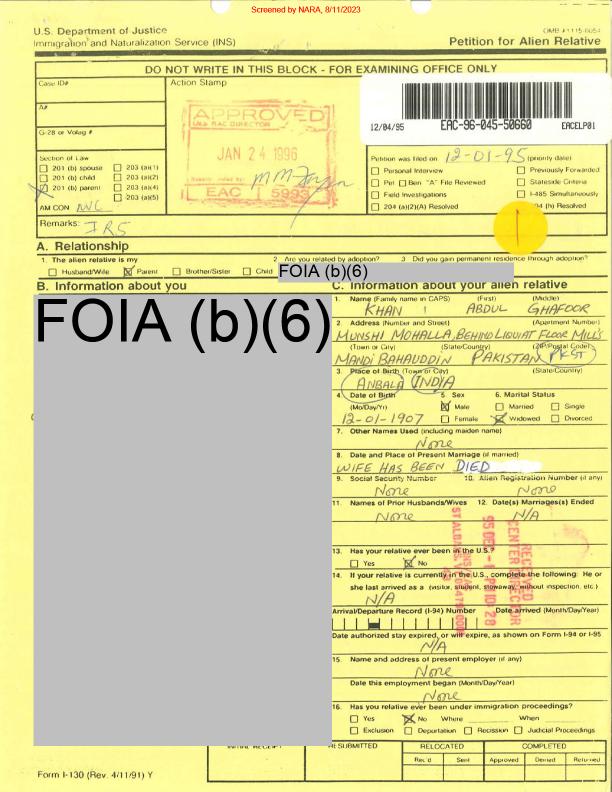 Screened by NARA, 8/11/2023
U.S. Department of Justice
Immigration and Naturalization Service (INS)
OMB #1115-0054
Petition for Alien Relative
DO NOT WRITE IN THIS BLOCK - FOR EXAMINING OFFICE ONLY
Case ID#
Action Stamp
A#
G-28 or Volag #
APPROVED
JAN 24 1996
EAC 5993
12/04/95 EAC-96-045-50660 EACELP01
Section of Law
201 (b) spouse 203 (a)(1)
201 (b) child 203 (a)(2)
201 (b) parent 203 (a)(4)
203 (a)(5)
AM CON NVC
Petition was filed on 12-01-95 (priority date)
Personal Interview Previously Forwarded
Pet Ben "A" File Reviewed Stateside Criteria
Field Investigations I-485 Simultaneously
204 (a)(2)(A) Resolved 204 (h) Resolved
Remarks:
A. Relationship
1. The alien relative is my
Husband/Wife Parent Brother/Sister Child
2. Are you related by adoption?
3. Did you gain permanent residence through adoption?
FOIA (b)(6)
B. Information about you
FOIA (b)(6)
C. Information about your alien relative
1. Name (Family name in CAPS) (First) (Middle)
KHAN ABDUL GHAFOOR
2. Address (Number and Street) (Apartment Number)
MUNSHI MOHALLA, BEHIND LIQUIAT FLOOR MILLS
(Town or City) (State/Country) (ZIP/Postal Code)
MANDI BAHAUDDIN PAKISTAN PKST
3. Place of Birth (Town or City) (State/Country)
ANBALA INDIA
4. Date of Birth 5. Sex 6. Marital Status
(Mo/Day/Yr) Male Married Single
12-01-1907 Female Widowed Divorced
7. Other Names Used (including maiden name)
None
8. Date and Place of Present Marriage (if married)
WIFE HAS BEEN DIED
9. Social Security Number 10. Alien Registration Number (if any)
None None
11. Names of Prior Husbands/Wives 12. Date(s) Marriages(s) Ended
None N/A
13. Has your relative ever been in the U.S.?
Yes No
14. If your relative is currently in the U.S., complete the following: He or
she last arrived as a (visitor, student, stowaway, without inspection, etc.)
N/A
Arrival/Departure Record (I-94) Number Date arrived (Month/Day/Year)
Date authorized stay expired, or will expire, as shown on Form I-94 or I-95
N/A
15. Name and address of present employer (if any)
None
Date this employment began (Month/Day/Year)
None
16. Has your relative ever been under immigration proceedings?
Yes No Where When
Exclusion Deportation Recission Judicial Proceedings
RECEIVED
CENTER DIRECTOR
INITIAL RECEIPT RESUBMITTED RELOCATED COMPLETED
Rec'd Sent Approved Denied Returned
Form I-130 (Rev. 4/11/91) Y